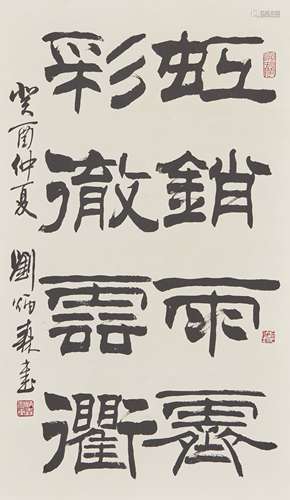 虹銷雨霽
彩徹雲衢
癸酉仲夏 劉炳森書